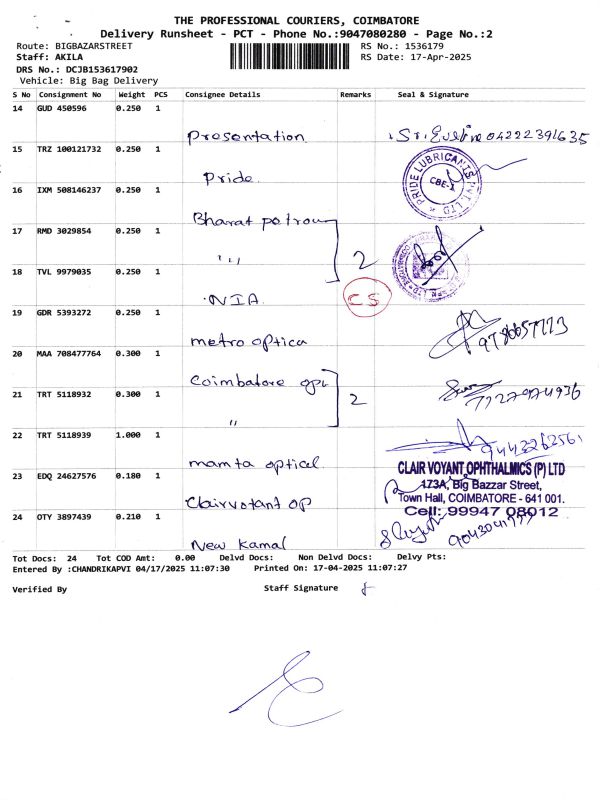 THE PROFESSIONAL COURIERS, COIMBATORE
Delivery Runsheet - PCT - Phone No.:9047080280 - Page No.:2
Route: BIGBAZARSTREET
RS No.: 1536179
Staff: AKILA
RS Date: 17-Apr-2025
DRS No.: DCJB153617902
Vehicle: Big Bag Delivery
S No Consignment No Weight PCS Consignee Details Remarks Seal & Signature
14 GUD 450596 0.250 1
Presentation 04222391635
15 TRZ 100121732 0.250 1
Pride.
PRIDE LUBRICANTS PVT. LTD
CBE-1
16 IXM 508146237 0.250 1
Bharat
17 RMD 3029854 0.250 1
" 2
18 TVL 9979035 0.250 1
NIA CS
19 GDR 5393272 0.250 1
metro optica
20 MAA 708477764 0.300 1
Coimbatore
21 TRT 5118932 0.300 1
" 2
22 TRT 5118939 1.000 1
mamta optical
23 EDQ 24627576 0.180 1
Clairvotant OP
CLAIR VOYANT OPHTHALMICS (P) LTD
173A, Big Bazzar Street,
Town Hall, COIMBATORE - 641 001.
Cell: 99947 08012
24 OTY 3897439 0.210 1
New Kamal
Tot Docs: 24 Tot COD Amt: 0.00 Delvd Docs: Non Delvd Docs: Delvy Pts:
Entered By :CHANDRIKAPVI 04/17/2025 11:07:30 Printed On: 17-04-2025 11:07:27
Verified By Staff Signature